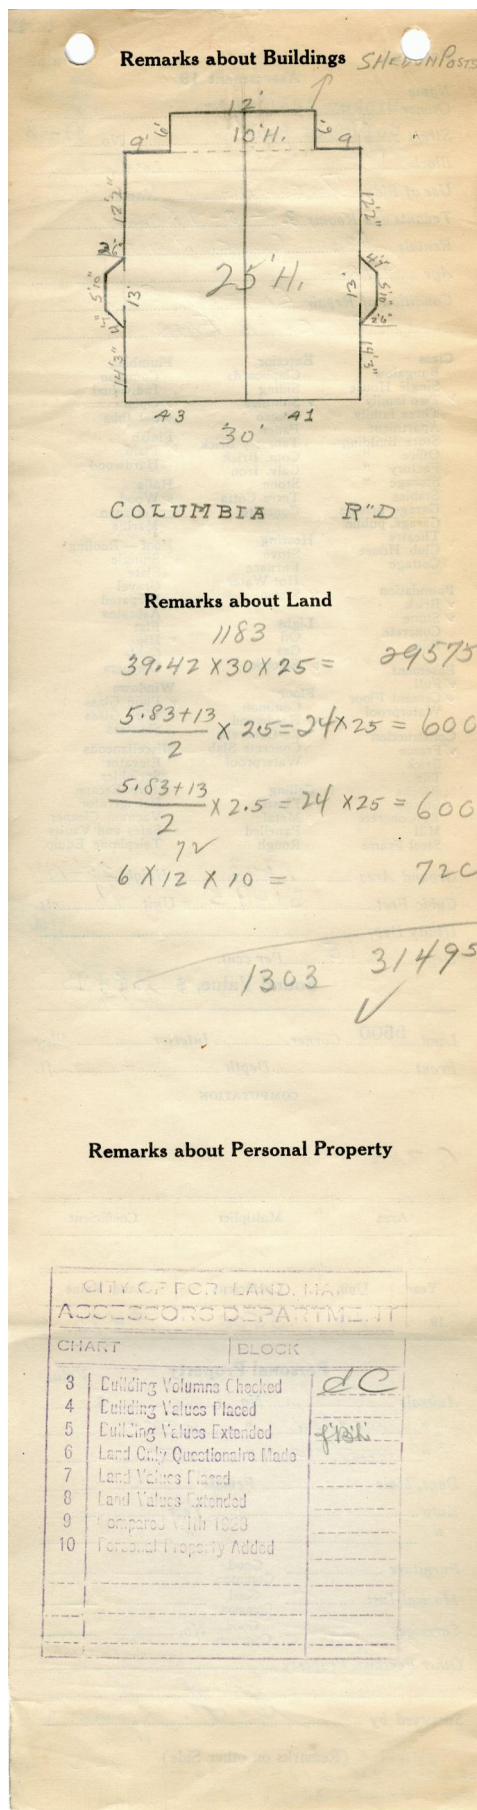 Remarks about Buildings
SHED ON POSTS
12'
9' 6' 10'H. 6' 9
12'2" 12'2"
25'H.
5'10" 13' 13' 5'10"
2'6"
14'3" 14'3"
43 41
30'
COLUMBIA R"D
Remarks about Land
1183
39.42 X 30 X 25 = 29575
5.83+13
2
X 2.5 = 24 X 25 = 600
5.83+13
2
X 2.5 = 24 X 25 = 600
72 ✓
6 X 12 X 10 = 720
1303 31495
✓
Remarks about Personal Property
CITY OF PORTLAND, MAINE
ASSESSORS DEPARTMENT
CHART BLOCK
3 Building Volumns Checked dC
4 Building Values Placed
5 Building Values Extended
6 Land Only Questionaire Made
7 Land Values Placed
8 Land Values Extended
9 Compared With 1923
10 Personal Property Added